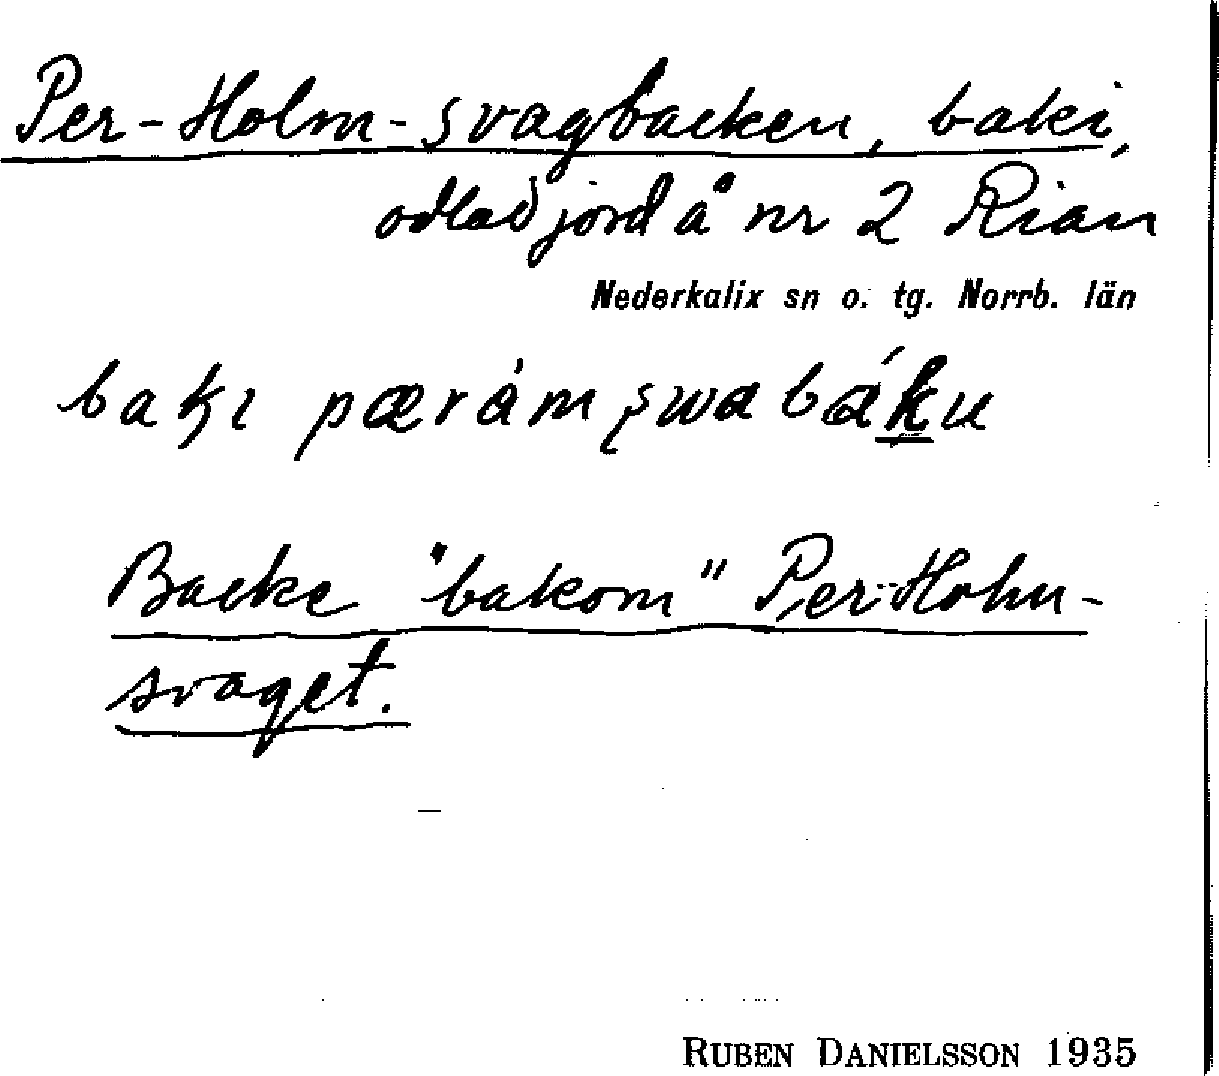 Per-Holm-svagbacken, baki,
odlad jord å nr 2 Rian
Nederkalix sn o. tg. Norrb. län
baki pæråmswabáku
Backe "bakom" Per-Holm-
svaget.
RUBEN DANIELSSON 1935